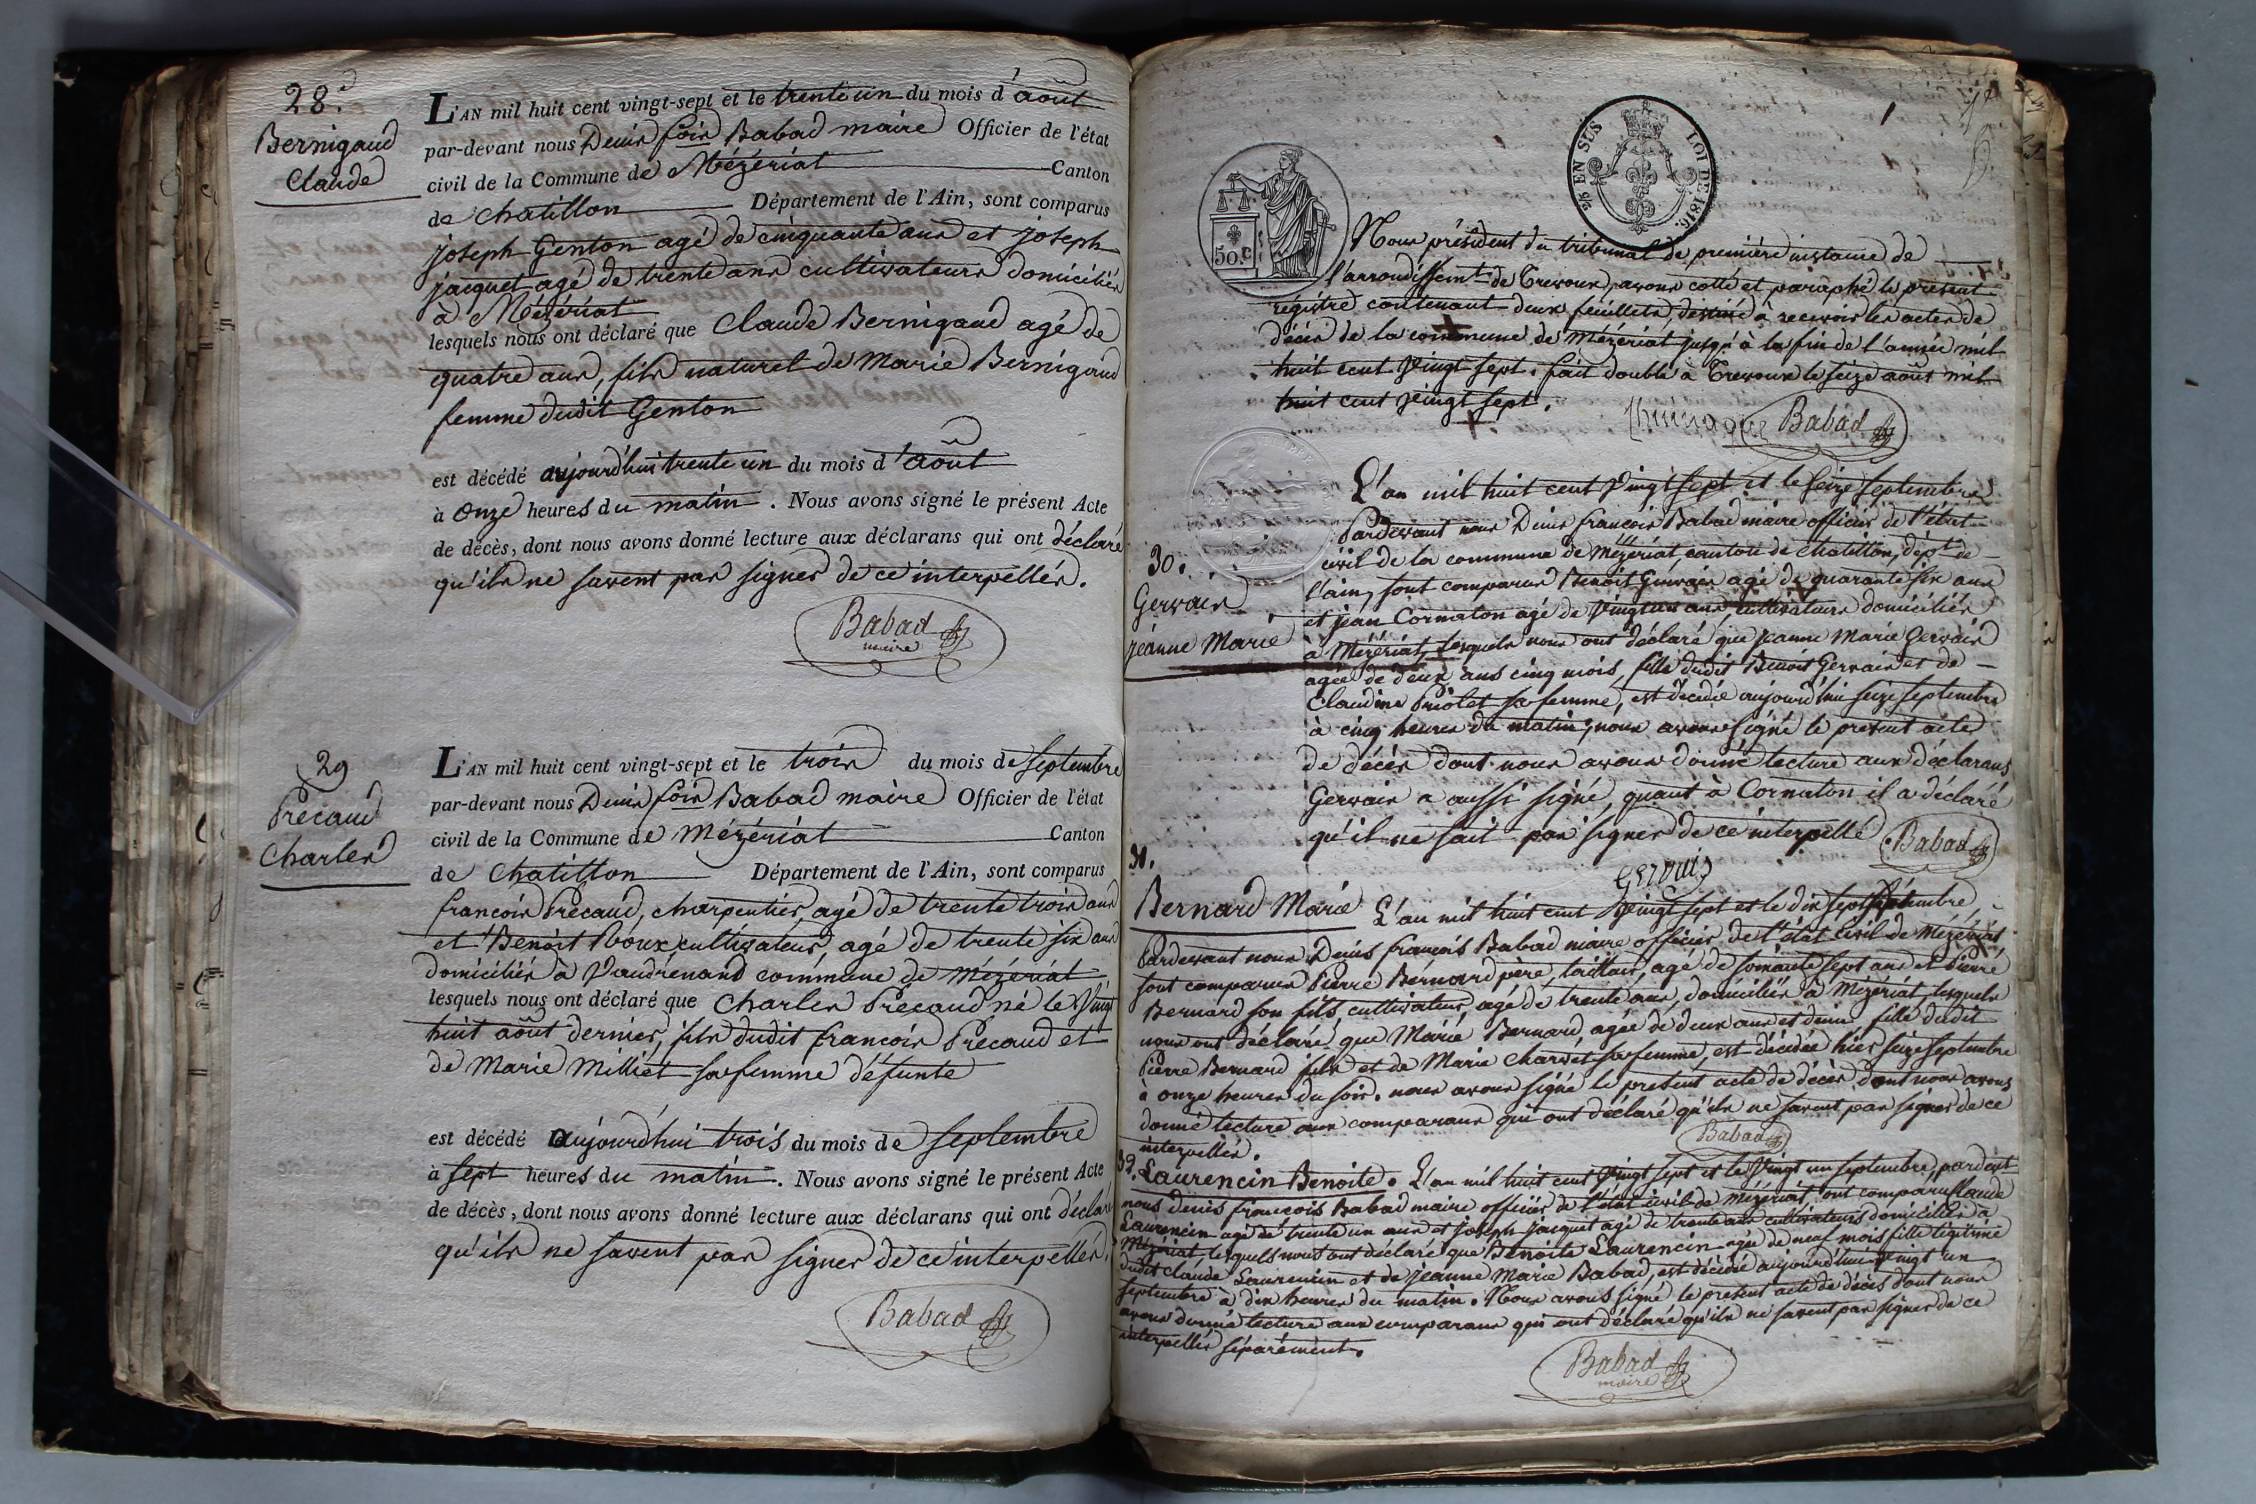 28.e
Bernigaud
Claude
L'AN mil huit cent vingt-sept et le trente un du mois d'août
par-devant nous Denis fois Babad maire Officier de l'état
civil de la Commune de Mézériat Canton
de chatillon Département de l'Ain, sont comparus
joseph Genton agé de cinquante ans et joseph
jacquet agé de trente ans cultivateurs domiciliés
à Mézériat
lesquels nous ont déclaré que Claude Bernigaud agé de
quatre ans, fils naturel de Marie Bernigaud
femme dudit Genton
est décédé aujourd'hui trente un du mois d'août
à onze heures du matin. Nous avons signé le présent Acte
de décès, dont nous avons donné lecture aux déclarans qui ont déclaré
qu'ils ne savent pas signer de ce interpellés.
Babad
maire
29
Precaud
Charles
L'AN mil huit cent vingt-sept et le trois du mois de septembre
par-devant nous Denis fois Babad maire Officier de l'état
civil de la Commune de Mézériat Canton
de Chatillon Département de l'Ain, sont comparus
francois Precaud, charpentier, agé de trente trois ans
et Benoit Roux, cultivateur, agé de trente six ans
domiciliés à Vaudrenand commune de Mézériat
lesquels nous ont déclaré que Charles Precaud né le Vingt
huit août dernier, fils dudit francois Precaud et
de Marie Milliet sa femme défunte
est décédé aujourd'hui trois du mois de septembre
à sept heures du matin. Nous avons signé le présent Acte
de décès, dont nous avons donné lecture aux déclarans qui ont déclaré
qu'ils ne savent pas signer de ce interpellés.
Babad
EN SUS
LOI DE 1816.
50.C
Nous président du tribunal de première instance de
l'arrondissemt de Trevoux, avons cotté et paraphé le présent
régistre contenant deux feuillets, destiné à recevoir les actes de
décès de la commune de Mézériat jusqu'à la fin de l'année mil
huit cent vingt sept. fait double à Trevoux le seize août mil
huit cent vingt sept.
Babad
L'an mil huit cent vingt sept et le seize septembre
Pardevant nous Denis francois Babad maire officier de l'état
civil de la commune de Mézériat, canton de chatillon, dépt de
30.
l'ain, sont comparus Benoit Gervais agé de quarante six ans
Gervais
et jean Cornaton agé de vingt un ans, cultivateurs domiciliés
jeanne Marie
à Mézériat, lesquels nous ont déclaré que jeanne Marie Gervais
agée de deux ans cinq mois, fille dudit Benoit Gervais et de
Claudine Priolet sa femme, est décédée aujourd'hui seize septembre
à cinq heures du matin; nous avons signé le présent acte
de décès dont nous avons donné lecture aux déclarans
Gervais a aussi signé, quant à Cornaton il a déclaré
qu'il ne sait pas signer de ce interpellé
Babad
gervais
31.
Bernard Marie L'an mil huit cent vingt sept et le dix sept septembre
Pardevant nous Denis françois Babad maire officier de l'état civil de Mézériat
sont comparus Pierre Bernard père, tailleur, agé de soixante sept ans et Pierre
Bernard son fils, cultivateur, agé de trente ans, domiciliés à Mézériat, lesquels
nous ont déclaré que Marie Bernard, agée de deux ans et demi fille dudit
Pierre Bernard fils et de Marie Charvet sa femme, est décédée hier seize septembre
à onze heures du soir. nous avons signé le présent acte de décès dont nous avons
donné lecture aux comparans qui ont déclaré qu'ils ne savent pas signer de ce
interpellés.
Babad
32. Laurencin Benoite. L'an mil huit cent vingt sept et le vingt un septembre, pardevt
nous denis francois Babad maire officier de l'état civil de Mézériat ont comparu Claude
Laurencin agé de trente un ans et joseph jacquet agé de trente ans cultivateurs domiciliés à
Mézériat, lesquels nous ont déclaré que Benoite Laurencin agée de neuf mois fille légitime
dudit claude Laurencin et de jeanne Marie Babad, est décédée aujourd'hui vingt un
septembre à dix heures du matin. Nous avons signé le présent acte de décès dont nous
avons donné lecture aux comparans qui ont déclaré qu'ils ne savent pas signer de ce
interpellés séparément.
Babad
maire